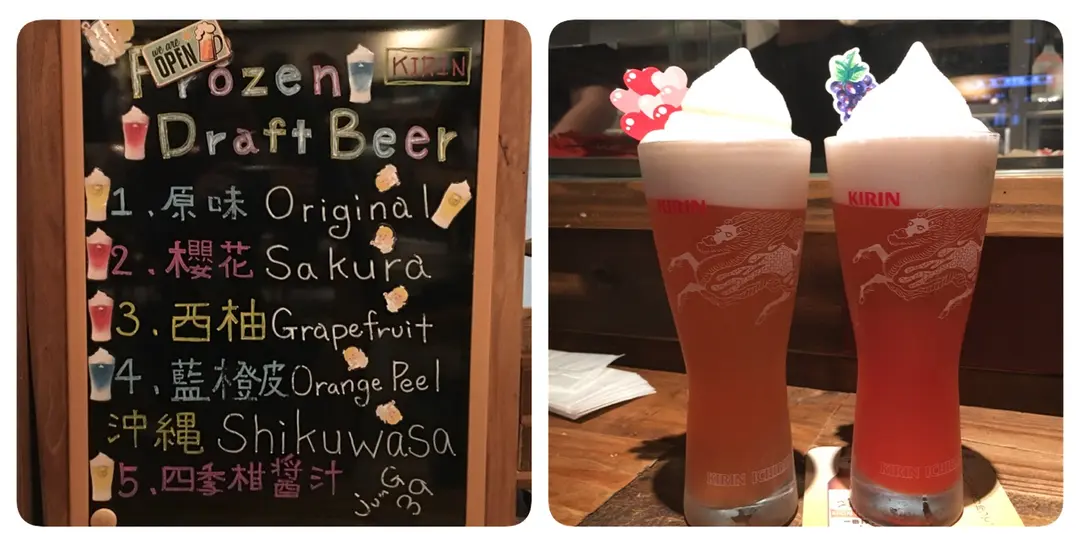 we are
OPEN
Frozen
KIRIN
Draft Beer
1.原味 Original
2.櫻花 Sakura
3.西柚 Grapefruit
4.藍橙皮 Orange Peel
沖縄 Shikuwasa
5.四季柑醬汁
KIRIN
KIRIN
KIRIN ICHI
KIRIN ICHI